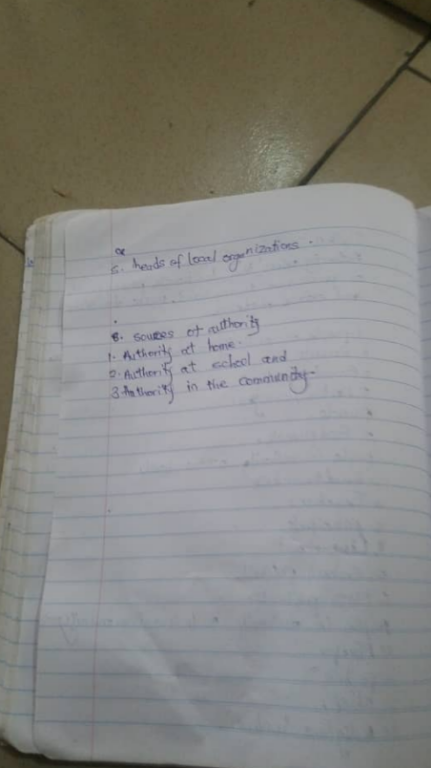 5. heads of local organizations.
6. sources of authority
1. Authority at home.
2. Authority at school and
3. Authority in the community.